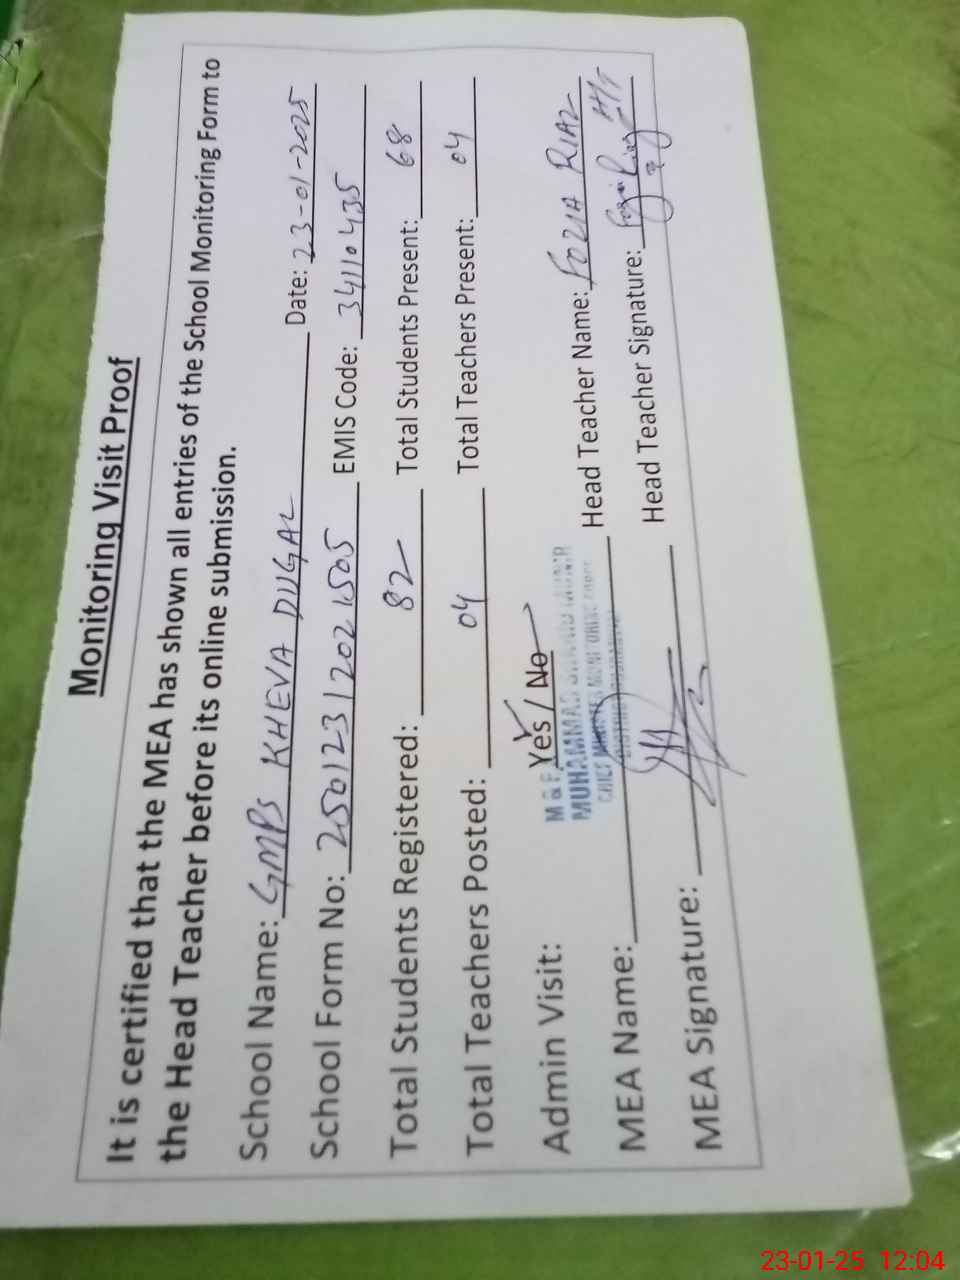 Monitoring Visit Proof
It is certified that the MEA has shown all entries of the School Monitoring Form to
the Head Teacher before its online submission.
School Name: GMPS KHEVA DUGAL Date: 23-01-2025
School Form No: 25012312021505 EMIS Code: 34110435
Total Students Registered: 82 Total Students Present: 68
Total Teachers Posted: 04 Total Teachers Present: 04
Admin Visit: Yes / No
M & E
MUHAMMAD
CHIEF MINISTER MONITORING FORCE
MEA Name: Head Teacher Name: FOZIA RIAZ
MEA Signature: Head Teacher Signature: Fozia Riaz H/T
23-01-25 12:04